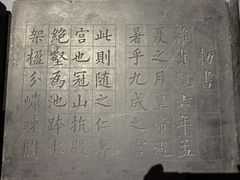 勅書
維貞觀六年孟
夏之月皇帝避
暑乎九成之宮
此則隨之仁壽
宮也冠山抗殿
絕壑為池跨水
架楹分巖竦闕